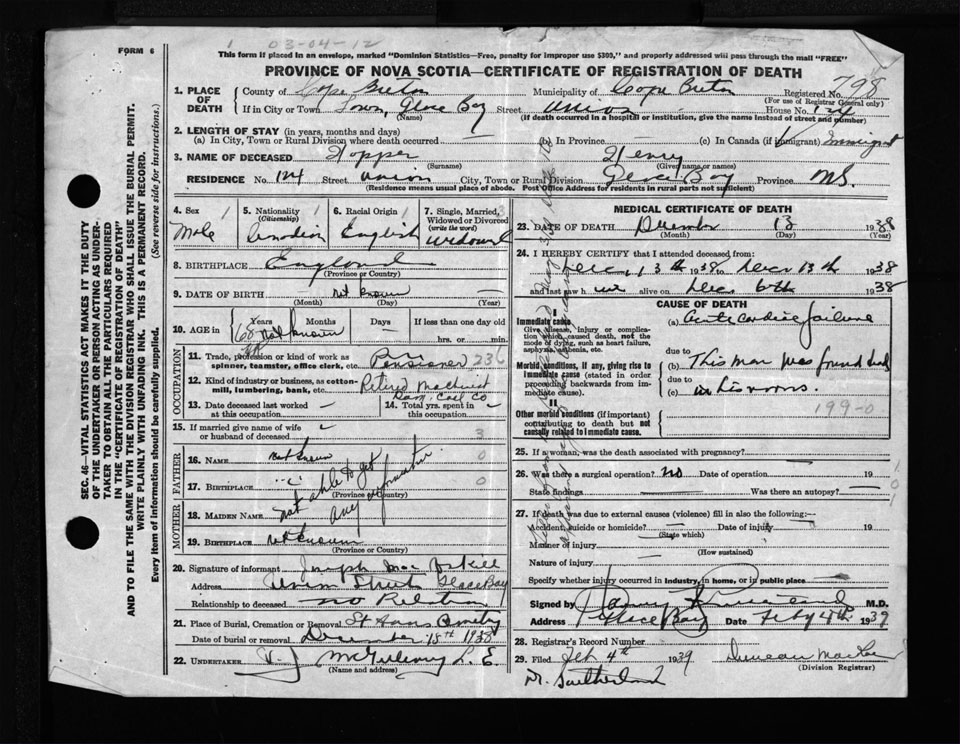 1 03-04-12
FORM 6
This form if placed in an envelope, marked "Dominion Statistics—Free, penalty for improper use $300," and properly addressed will pass through the mail "FREE"
PROVINCE OF NOVA SCOTIA—CERTIFICATE OF REGISTRATION OF DEATH
798
1. PLACE OF DEATH
County of Cape Breton Municipality of Cape Breton Registered No.
(For use of Registrar General only)
If in City or Town Town, Glace Bay Street Union House No. 124
(Name) (If death occurred in a hospital or institution, give the name instead of street and number)
2. LENGTH OF STAY (in years, months and days)
(a) In City, Town or Rural Division where death occurred (b) In Province (c) In Canada (if immigrant) Immigrant
3. NAME OF DECEASED Henry
(Surname) (Given name or names)
RESIDENCE No. 124 Street Union City, Town or Rural Division Glace Bay Province N.S.
(Residence means usual place of abode. Post Office Address for residents in rural parts not sufficient)
SEC. 46—VITAL STATISTICS ACT MAKES IT THE DUTY
OF THE UNDERTAKER OR PERSON ACTING AS UNDER-
TAKER TO OBTAIN ALL THE PARTICULARS REQUIRED
IN THE "CERTIFICATE OF REGISTRATION OF DEATH"
AND TO FILE THE SAME WITH THE DIVISION REGISTRAR WHO SHALL ISSUE THE BURIAL PERMIT.
WRITE PLAINLY WITH UNFADING INK. THIS IS A PERMANENT RECORD.
Every item of information should be carefully supplied. (See reverse side for instructions.)
4. Sex 1
Male
5. Nationality 1
(Citizenship)
Canadian
6. Racial Origin 1
English
7. Single, Married, Widowed or Divorced
(write the word)
Widowed
8. BIRTHPLACE England
(Province or Country)
9. DATE OF BIRTH not known
(Month) (Day) (Year)
10. AGE in Years Months Days If less than one day old
68 not known hrs. or min.
OCCUPATION
11. Trade, profession or kind of work as spinner, teamster, office clerk, etc. Pensioner 236
12. Kind of industry or business, as cotton-mill, lumbering, bank, etc. Retired Machinist
Dom. Coal Co
13. Date deceased last worked at this occupation
14. Total yrs. spent in this occupation
15. If married give name of wife or husband of deceased
3
FATHER
16. Name not known 0
17. Birthplace 0
(Province or Country)
not able to get
any information
MOTHER
18. Maiden Name
19. Birthplace not known
(Province or Country)
20. Signature of informant Joseph Mac
Address Union Street Glace Bay
Relationship to deceased no Relation
21. Place of Burial, Cremation or Removal St Anns Cemetery
Date of burial or removal December 18th 1938
22. UNDERTAKER V. J. McGillivary L. E.
(Name and address)
MEDICAL CERTIFICATE OF DEATH
23. DATE OF DEATH December 13 1938
(Month) (Day) (Year)
24. I HEREBY CERTIFY that I attended deceased from
Dec. 13th 1938 to Dec. 13th 1938
and last saw h im alive on Dec. 6th 1938
CAUSE OF DEATH
I
Immediate cause
Give disease, injury or complication which caused death, not the mode of dying, such as heart failure, asphyxia, asthenia, etc.
(a) Acute cardiac failure
due to
Morbid conditions, if any, giving rise to immediate cause (stated in order proceeding backwards from immediate).
(b) This man was found dead
due to
(c) in his rooms.
199-0
II
Other morbid conditions (if important) contributing to death but not causally related to immediate cause.
25. If a woman, was the death associated with pregnancy?
26. Was there a surgical operation? No Date of operation 19
State findings Was there an autopsy?
1
0
1
27. If death was due to external causes (violence) fill in also the following:—
Accident, suicide or homicide? Date of injury 19
(State which)
Manner of injury
(How sustained)
Nature of injury
Specify whether injury occurred in industry, in home, or in public place
Signed by M.D.
Address Glace Bay Date Feby 4th 1939
28. Registrar's Record Number
29. Filed Feb 4th 1939 Duncan
(Division Registrar)
Dr. Sutherland